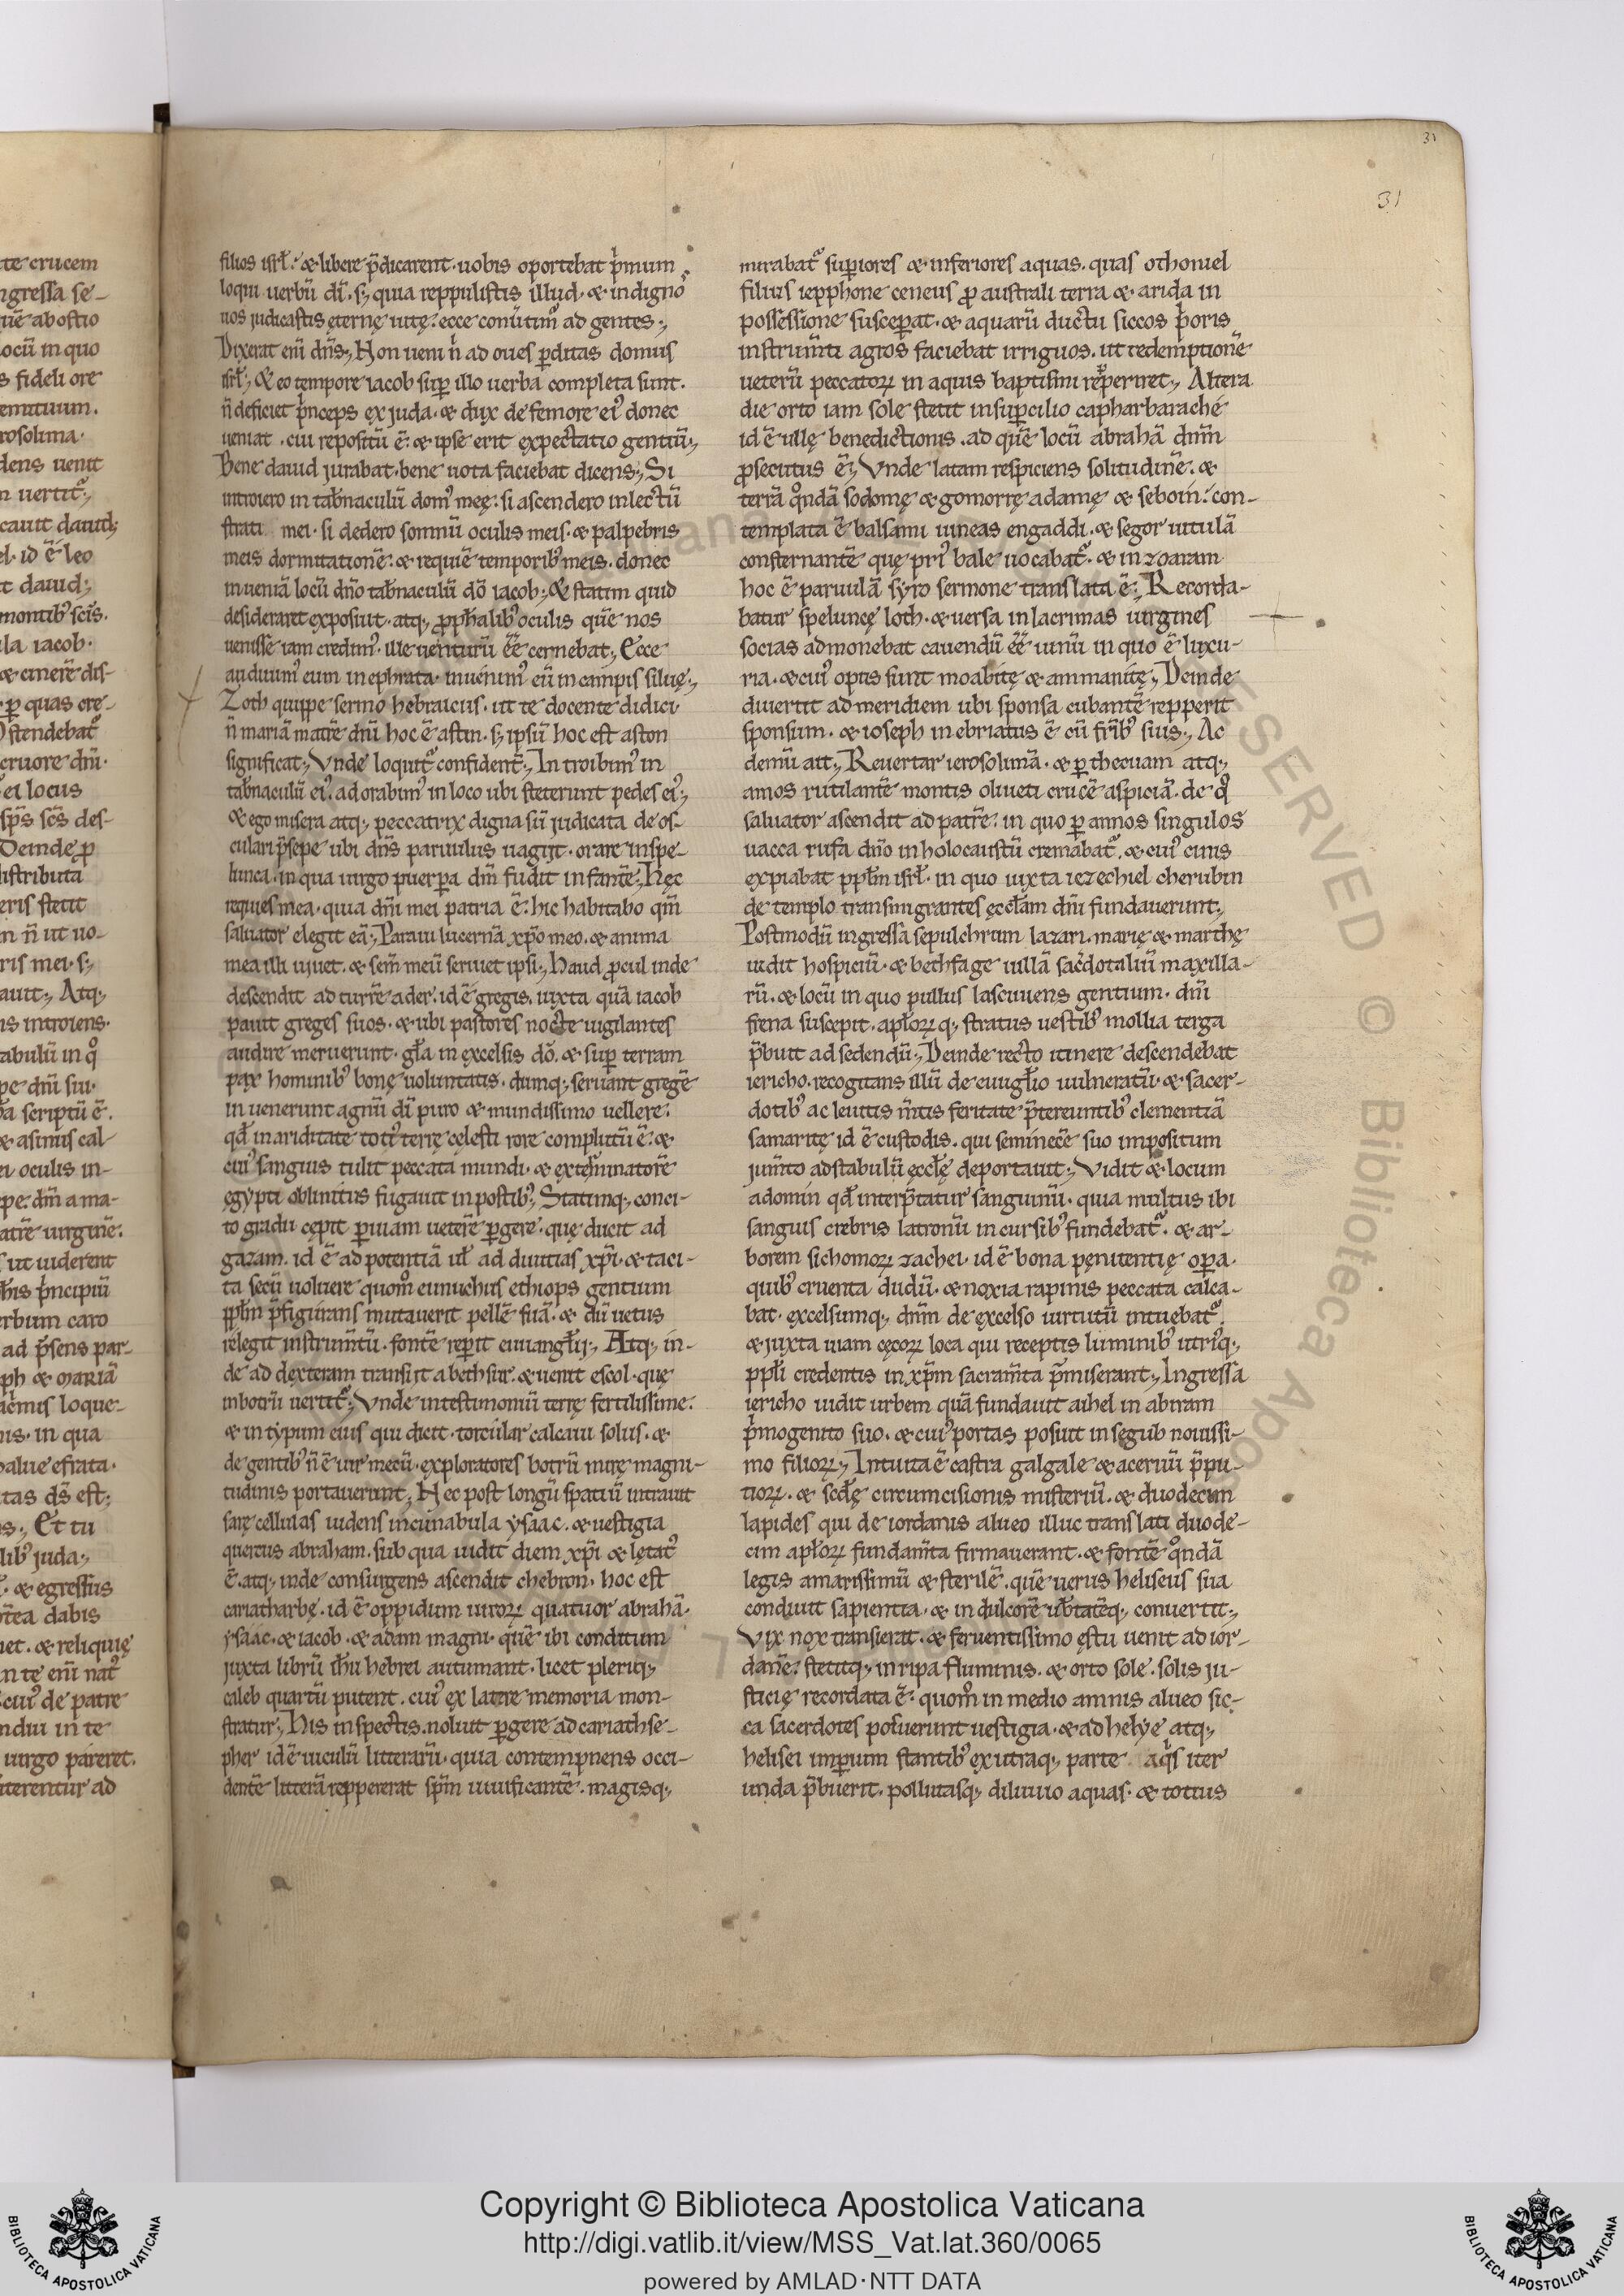 31
31
filios isrl̃. & libere p̃dicarent. uobis oportebat p̾mum
loqui uerbū dī. s; quia reppulistis illud. & indigno
uos judicastis ęternę uitę. ecce conũtimꝰ ad gentes;
Dixerat eni dñs; Non ueni ñ ad oues ꝑditas domus
isrl̃; & eo tempore iacob suꝑ illo uerba completa sunt.
ñ deficiet p̾nceps ex juda. & dux de femore eiꝰ donec
ueniat. cui repositū ē. & ipse erit expectatio gentiū;
Bene dauid jurabat. bene uota faciebat dicens; Si
introiero in tab̃naculū domꝰ meę. si ascendero in lectū
strati mei. si dedero somnū oculis meis. & palpebris
meis dormitationē. & requiē temporibꝰ meis. donec
inueniā locū dño tab̃naculū dō iacob; & statim quid
desideraret exposuit. atq; ꝓphalibꝰ oculis quē nos
uenisse iam credimꝰ. ille uenturū ēē cernebat; Ecce
audiuimꝰ eum in ephrata. inuenimꝰ eū in campis siluę;
Zoth quippe sermo hebraicus. ut te docente didici
ñ mariā matrē dñi hoc ē astin. s; ipsū hoc est aston
significat; Vnde loquit᷑ confident̃; Introibimꝰ in
tab̃naculū eiꝰ. adorabimꝰ in loco ubi steterunt pedes eiꝰ;
& ego misera atq; peccatrix digna sū judicata de os-
culari p̃sepe ubi dñs paruulus uagijt. orare in spe-
lunca. in qua uirgo puerꝑa dm̄ fudit infantē; Hęc
requies mea. quia dm̄i mei patria ē. hic habitabo qm̄
saluator elegit eā; Paraui lucernā xp̄o meo. & anima
mea illi uiuet. & sem̄ meū seruiet ipsi; Haud ꝓcul inde
descendit ad turrē ader. id ē gregis. iuxta quā iacob
pauit greges suos. & ubi pastores nocte uigilantes
audire meruerunt. gl̃a in excelsis dō. & suꝑ terram
pax hominibꝰ bonę uoluntatis. dumq; seruant gregē
inuenerunt agnū dī puro & mundissimo uellere.
qđ in ariditate totiꝰ terrę cęlesti rore complutū ē. &
cuiꝰ sanguis tulit peccata mundi. & exterminatorē
ęgypti oblinitus fugauit in postibꝰ; Statimq; conci-
to gradu cępit ꝑ uiam ueterē ꝑgere. quę ducit ad
gazam. id ē ad potentiā ul̃ ad diuitias xp̄i. & taci-
ta secū uoluere quom̊ eunuchus ethiops gentium
ppl̃m p̃figurans mutauerit pellē suā. & dū uetus
relegit instrum̃tū. fontē reꝑit euuangl̃ij; Atq; in-
de ad dexteram transijt a bethsur. & uenit escol. quę
in botrū uertit᷑; Vnde in testimoniū terrę fertilissime.
& in typum eius qui dicit. torcular calcaui solus. &
de gentibꝰ ñ ē uir mecū. exploratores botrū mirę magni-
tudinis portauerunt; Nec post longū spatiū intrauit
sarę cellulas uidens incunabula ysaac. & uestigia
quercus abraham. sub qua uidit diem xp̄i & lętatꝰ
ē. atq; inde consurgens ascendit chebron. hoc est
cariatharbę. id ē oppidum uiroꝝ quatuor abrahā.
ysaac. & iacob. & adam magni. quē ibi conditum
juxta librū ih̃u hebrei autumant. licet pleriq;
caleb quartū putent. cuiꝰ ex latere memoria mon-
stratur; His inspectis. noluit ꝑgere ad cariathse-
pher id ē uiculū litterarū. quia contempnens occi-
dentē litterā reppererat sp̄m uiuificantē. magisq;
mirabat᷑ suꝑiores & inferiores aquas. quas othoniel
filius iepphone ceneus ꝓ australi terra & arida in
possessione susceꝑat. & aquarū ductu siccos p̾oris
instrum̃ti agros faciebat irriguos. ut redemptionē
ueterū peccatoꝝ in aquis baptismi repperiret; Altera
die orto iam sole stetit in suꝑcilio capharbarache
id ē uillę benedictionis. ad quē locū abrahā dñm
ꝓsecutus ē; Vnde latam respiciens solitudinē. &
terrā q̊ndā sodomę & gomorrę adamę & seboin. con-
templata ē balsami uineas engaddi. & segor uitulā
consternantē quę priꝰ bale uocabat᷑. & in zoaram
hoc ē paruulā syro sermone translata ē; Recorda-
batur speluncę loth. & uersa in lacrimas uirgines
socias admonebat cauendū ēē uinū in quo ē luxu-
ria. & cuiꝰ opus sunt moabitę & ammanitę; Deinde
diuertit ad meridiem ubi sponsa cubantē repperit
sponsum. & ioseph inebriatus ē cū fr̃ibꝰ suis; Ac
demū ait; Reuertar ierosolimā. & ꝑ thecuam atq;
amos rutilantē montis oliueti crucē aspiciā. de q̊
saluator ascendit ad patrē. in quo ꝑ annos singulos
uacca rufa dño in holocaustū cremabat᷑. & cuiꝰ cinis
expiabat ppl̃m isrl̃. in quo iuxta iezechiel cherubin
de templo transmigrantes ęccl̃am dm̄i fundauerunt;
Postmodū ingressa sepulchrum lazari. marię & marthę
uidit hospiciū. & bethfage uillā sac̃dotaliū maxilla-
rū. & locū in quo pullus lasciuiens gentium. dm̄i
frena suscepit. apl̃oꝝq; stratus uestibꝰ mollia terga
p̃buit ad sedendū; Deinde recto itinere descendebat
iericho. recogitans illū de euuĝlio uulneratū. & sacer-
dotibꝰ ac leuitis m̃tis feritate p̃tereuntibꝰ clementiā
samaritę id ē custodis. qui seminecē suo impositum
jum̃to ad stabulū ęccl̃ę deportauit; Vidit & locum
adomin qđ interp̃tatur sanguinū. quia multus ibi
sanguis crebris latronū incursibꝰ fundebat᷑. & ar-
borem sichomoꝝ zachei. id ē bona pęnitentię oꝑa.
quibꝰ cruenta dudū. & noxia rapinis peccata calca-
bat. excelsumq; dñm de excelso uirtutū intuebat᷑.
& juxta uiam cęcoꝝ loca qui receptis luminibꝰ utriꝰq;
ppl̃i credentis in xp̄m sacram̃ta p̃miserant; Ingressa
iericho uidit urbem quā fundauit aihel in abiram
p̾mogenito suo. & cuiꝰ portas posuit in segub nouissi-
mo filioꝝ; Intuita ē castra galgale & aceruū p̃pu-
tioꝝ. & scdę circumcisionis misteriū. & duodecim
lapides qui de iordanis alueo illuc translati duode-
cim apl̃oꝝ fundam̃ta firmauerant. & fontē q̊ndā
legis amarissimū & sterilē. quē uerus heliseus sua
condiuit sapientia. & in dulcorē ub̃tatēq; conuertit;
Vix nox transierat. & feruentissimo ęstu uenit ad ior-
danē. stetitq; in ripa fluminis. & orto sole. solis ju-
sticię recordata ē. quom̊ in medio amnis alueo sic-
ca sacerdotes posuerunt uestigia. & ad helye atq;
helisei imꝑium stantibꝰ ex utraq; parte aq̾s iter
unda p̃buerit. pollutasq; diluuio aquas. & totius
Copyright © Biblioteca Apostolica Vaticana
http://digi.vatlib.it/view/MSS_Vat.lat.360/0065
powered by AMLAD·NTT DATA